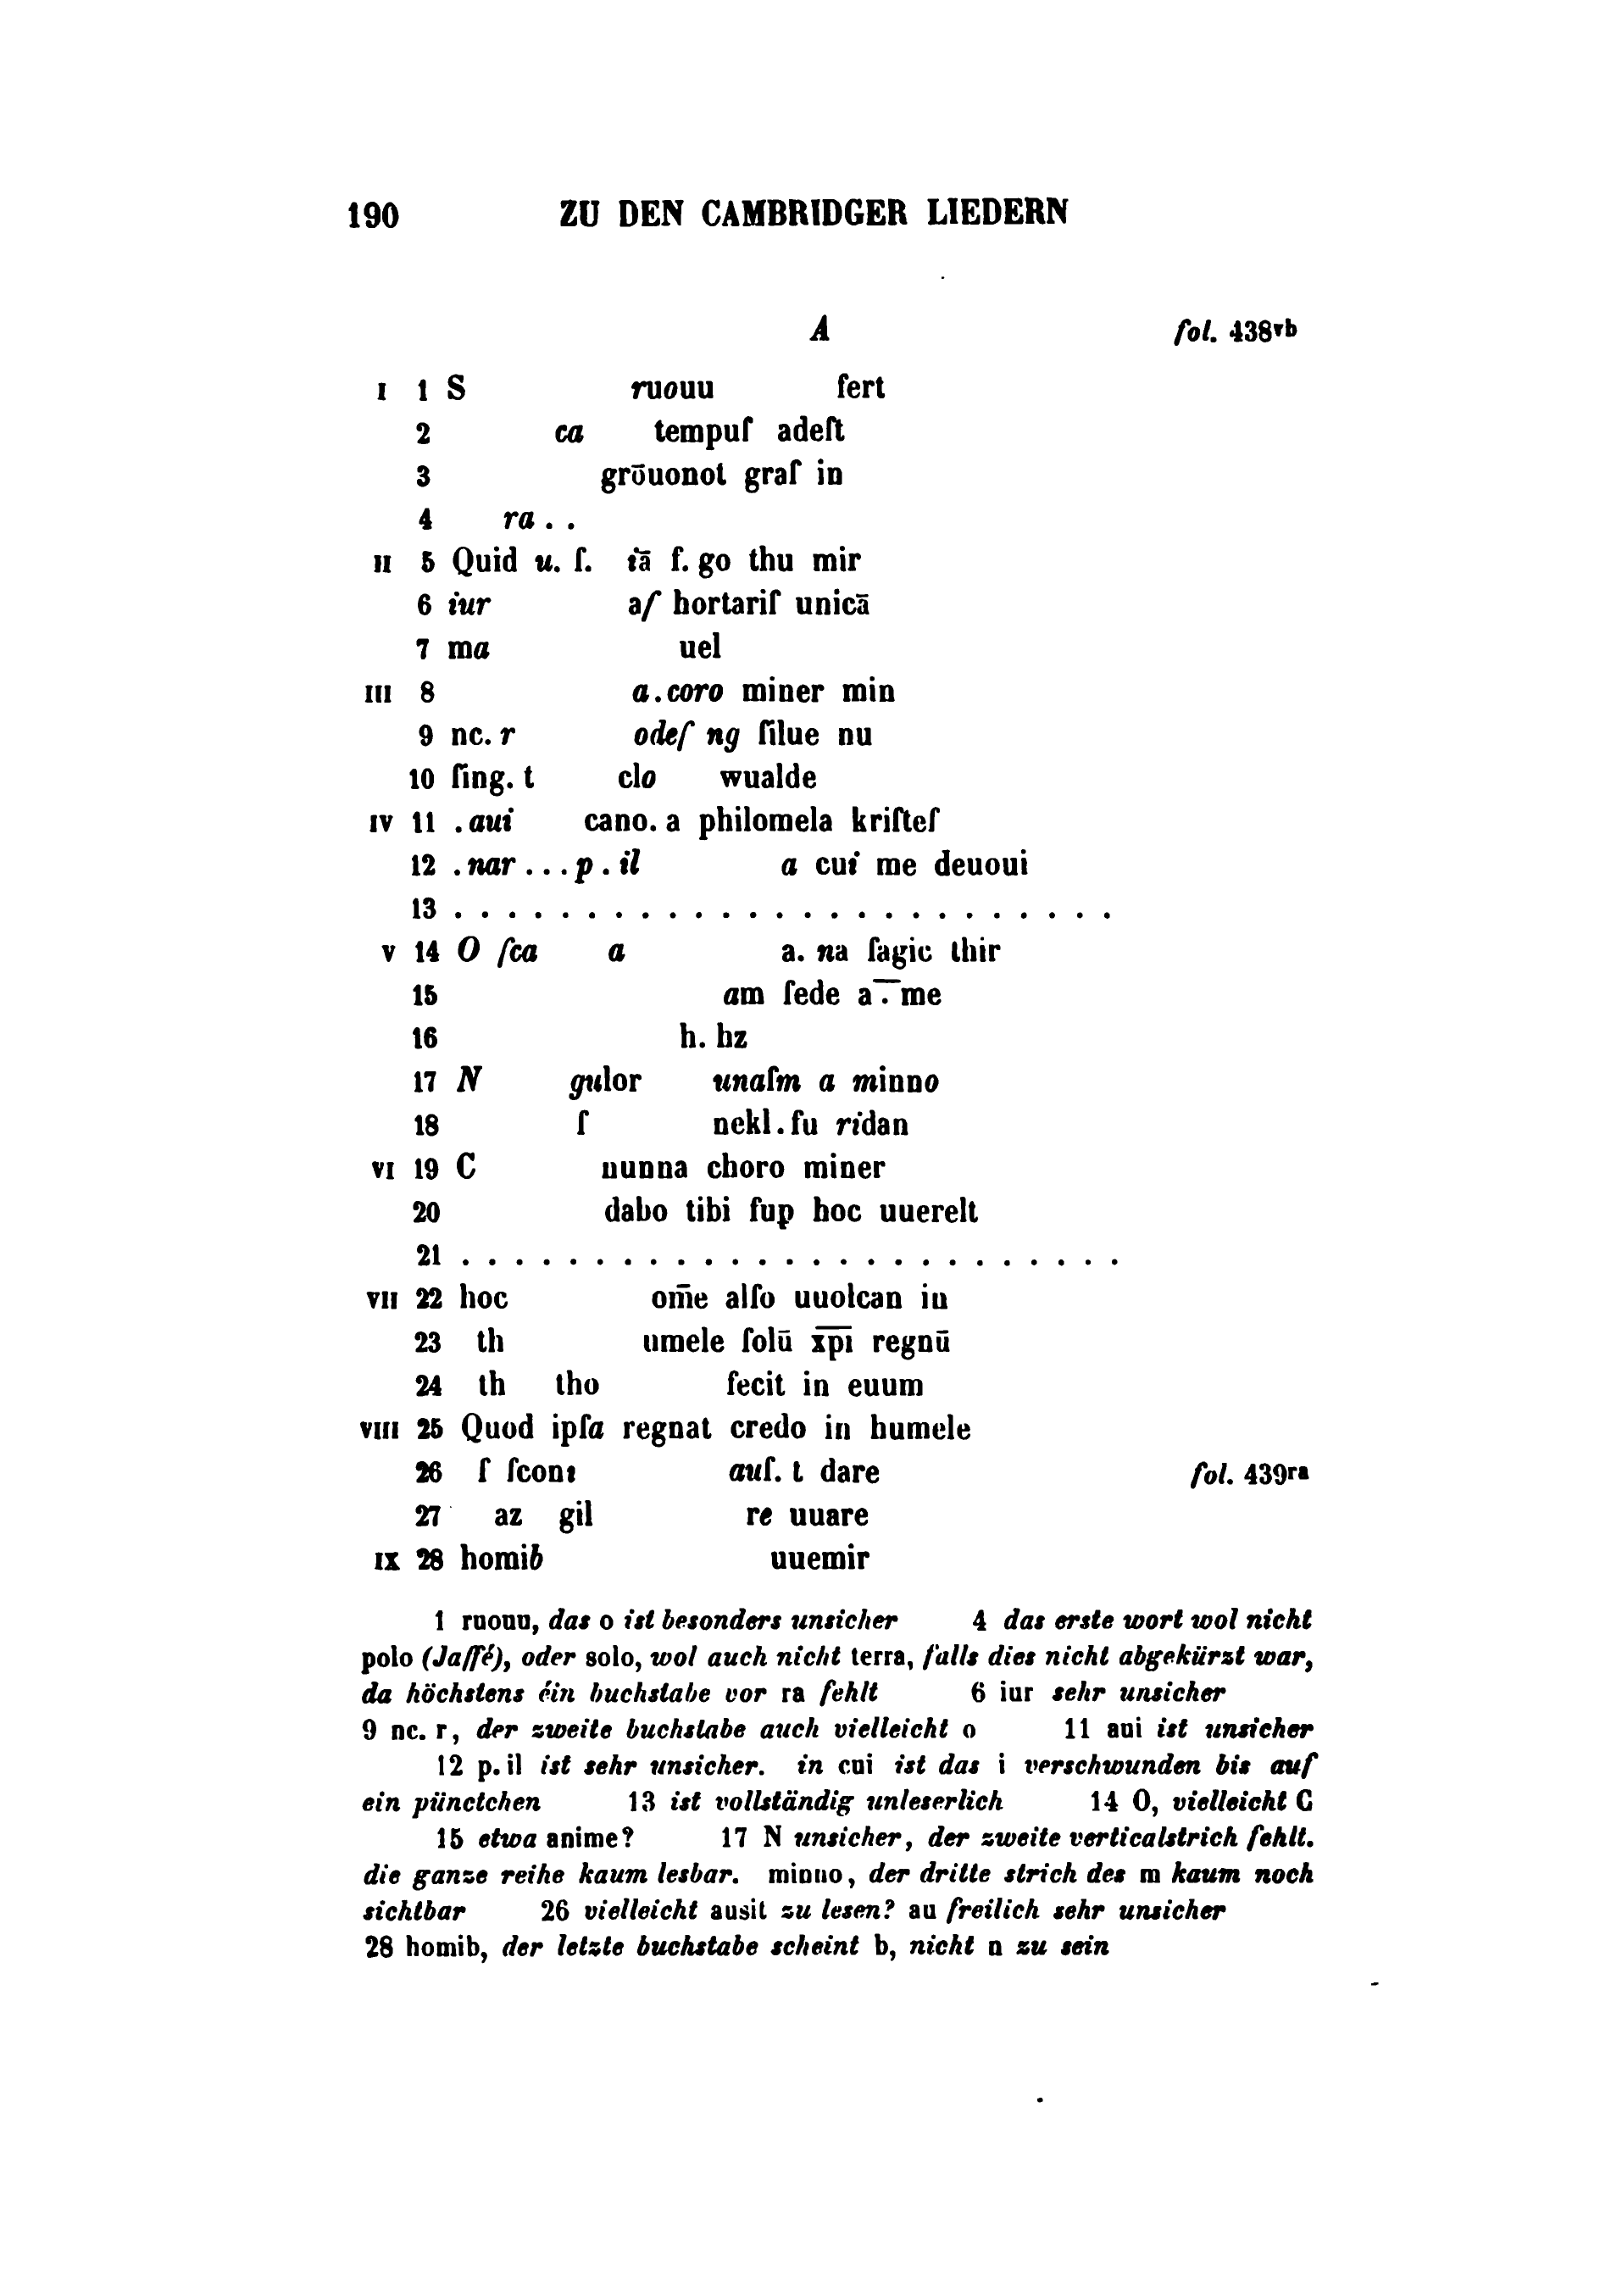 190 ZU DEN CAMBRIDGER LIEDERN
A fol. 438rb
I 1 S ruouu ſert
2 ca tempuſ adeſt
3 grōuonot graſ in
4 ra . .
II 5 Quid u. ſ. tā f. go thu mir
6 iur aſ hortariſ unicā
7 ma uel
III 8 a.coro miner min
9 nc. r odeſ ng ſilue nu
10 ſing. t clo wualde
IV 11 .aui cano. a philomela kriſteſ
12 .nar ... p . il a cui me deuoui
13 . . . . . . . . . . . . . . . . . . . . . . . . .
V 14 O ſca a a. na ſagic thir
15 am ſede a .̅ me
16 h. hz
17 N gulor unaſm a minno
18 ſ nekl.fu ridan
VI 19 C nunna choro miner
20 dabo tibi ſup hoc uuerelt
21 . . . . . . . . . . . . . . . . . . . . . . . . .
VII 22 hoc om̄e alſo uuolcan in
23 th umele ſolū x̅p̅i̅ regnū
24 th tho fecit in euum
VIII 25 Quod ipſa regnat credo in humele
26 ſ ſcont auſ. t dare fol. 439ra
27 az gil re uuare
IX 28 homib uuemir
1 ruouu, das o ist besonders unsicher 4 das erste wort wol nicht
polo (Jaffé), oder solo, wol auch nicht terra, falls dies nicht abgekürzt war,
da höchstens éin buchstabe vor ra fehlt 6 iur sehr unsicher
9 nc. r, der zweite buchstabe auch vielleicht o 11 aui ist unsicher
12 p. il ist sehr unsicher. in cui ist das i verschwunden bis auf
ein pünctchen 13 ist vollständig unleserlich 14 O, vielleicht C
15 etwa anime? 17 N unsicher, der zweite verticalstrich fehlt.
die ganze reihe kaum lesbar. minno, der dritte strich des m kaum noch
sichtbar 26 vielleicht ausit zu lesen? au freilich sehr unsicher
28 homib, der letzte buchstabe scheint b, nicht n zu sein